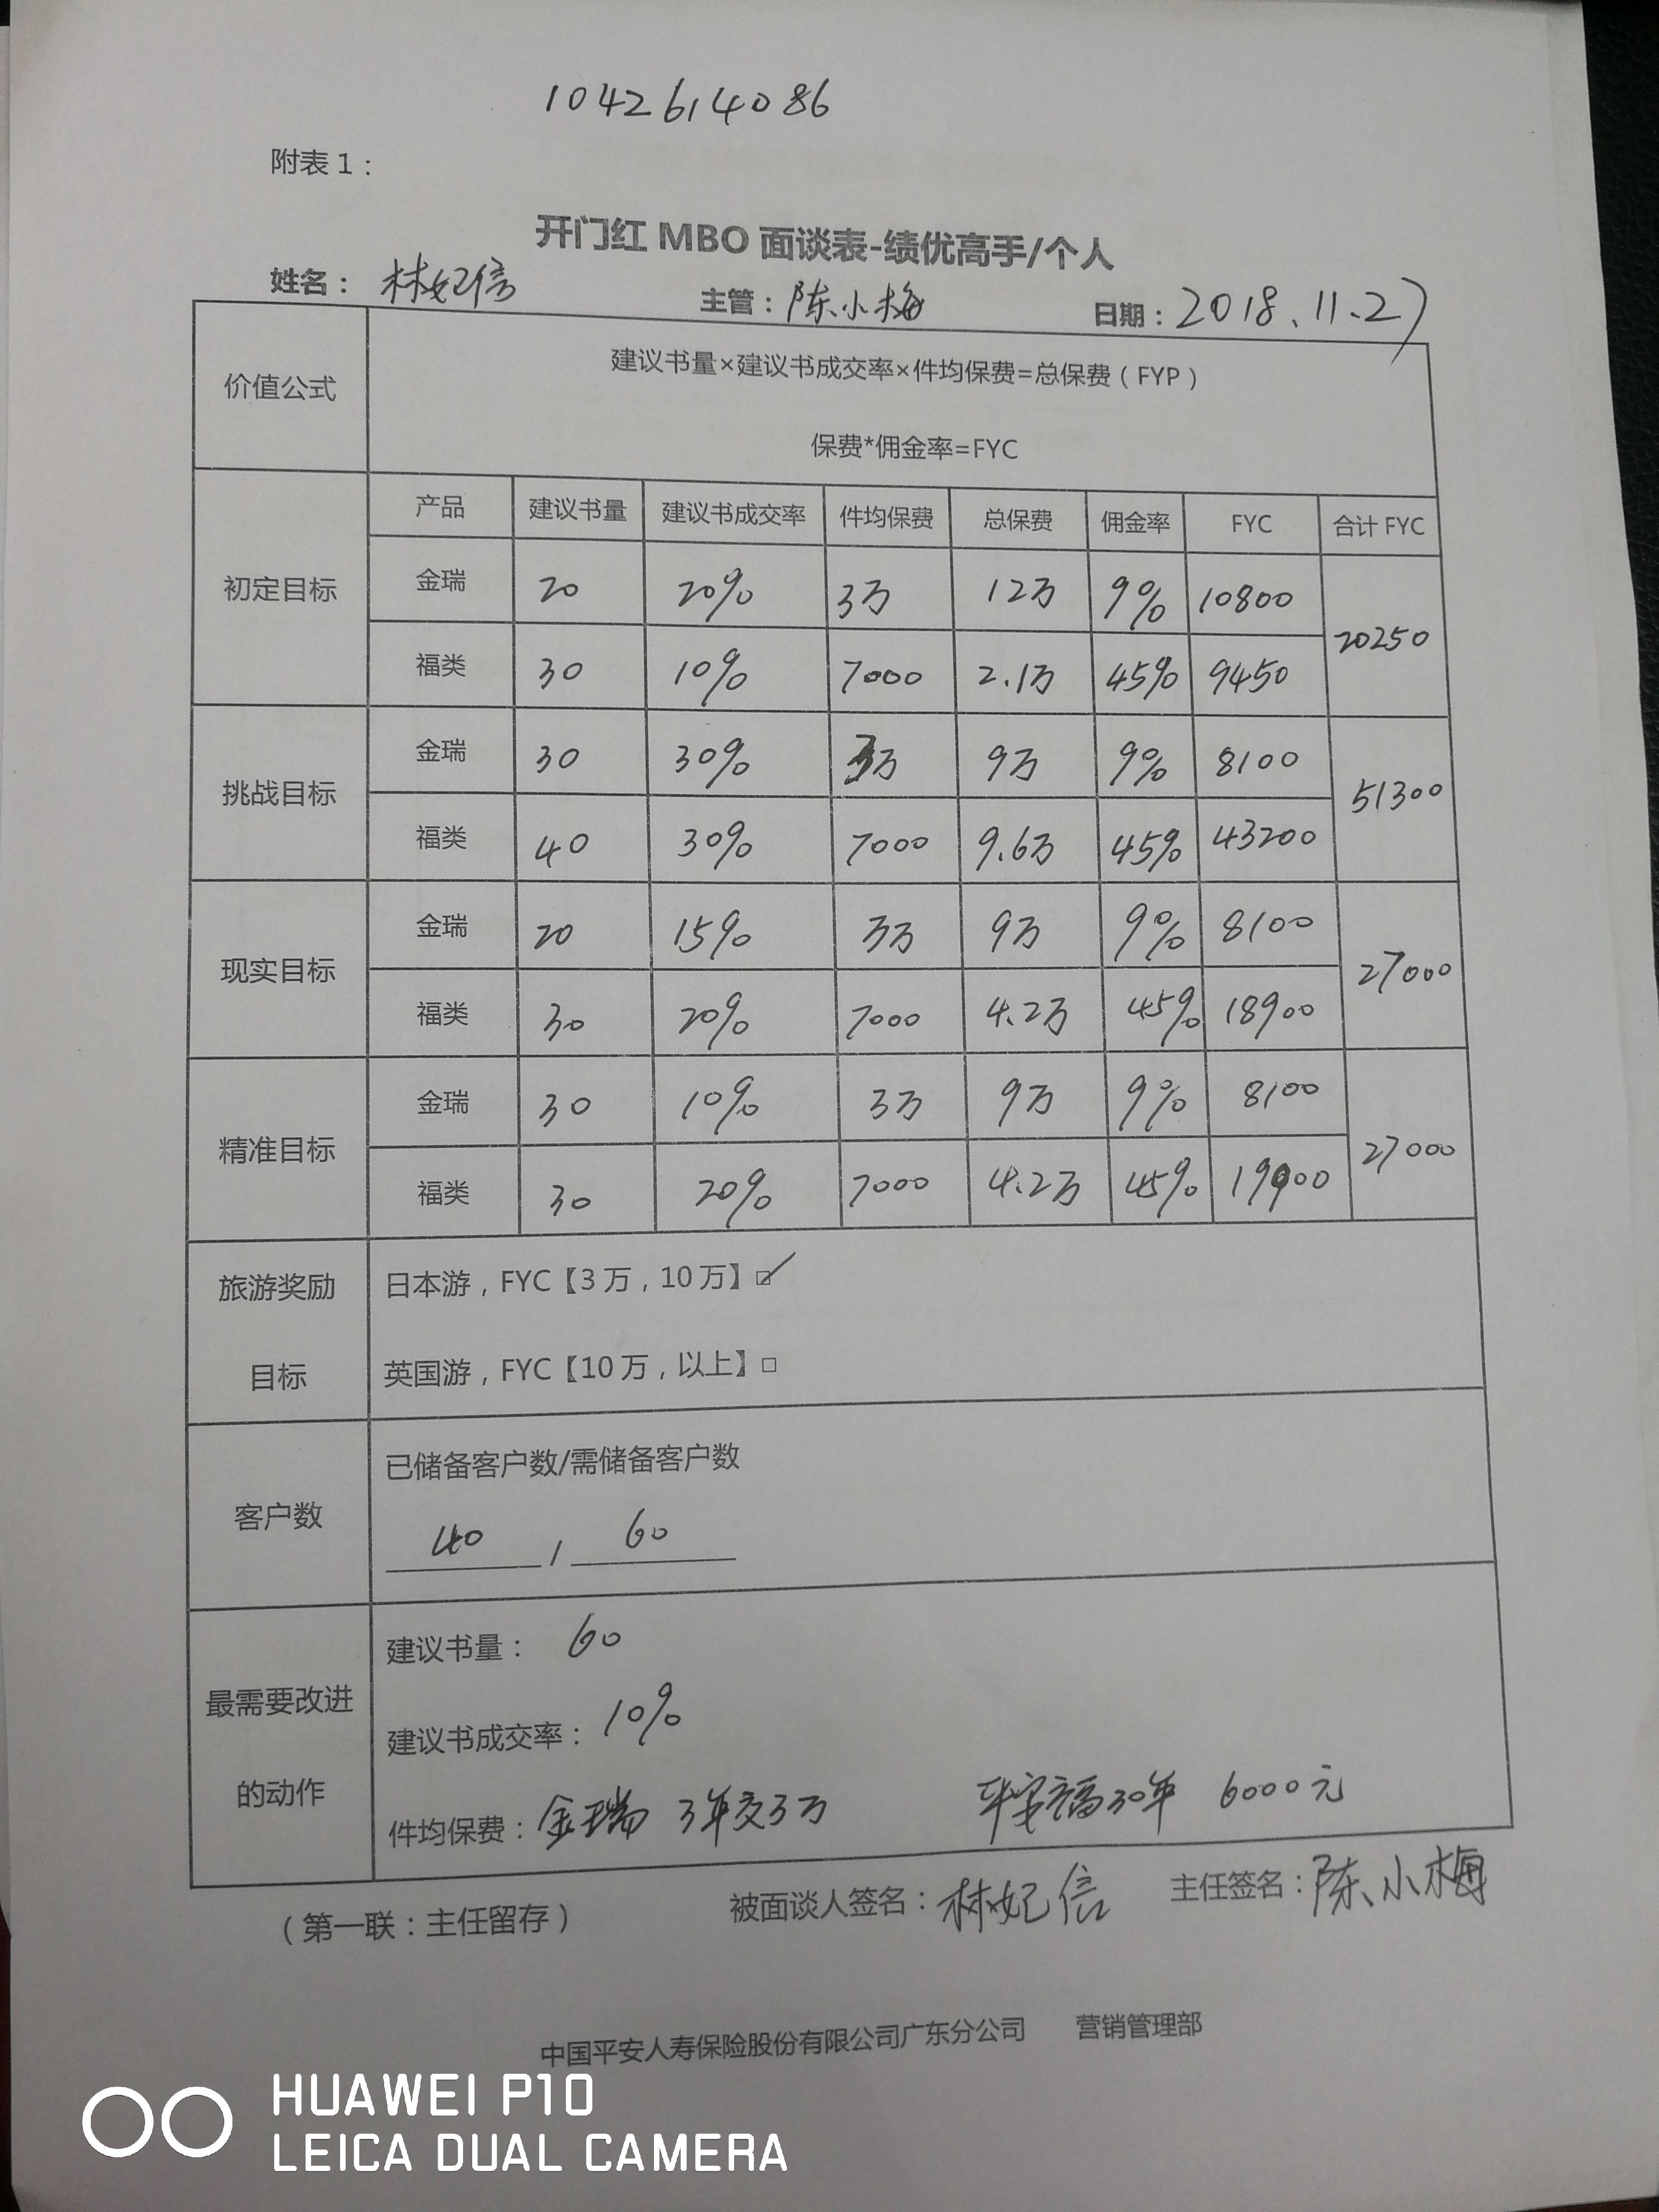 1042614086
附表1：
开门红 MBO 面谈表-绩优高手/个人
姓名： 林妃信 主管：陈小梅 日期：2018.11.27
价值公式
建议书量×建议书成交率×件均保费=总保费（FYP）
保费*佣金率=FYC
产品 建议书量 建议书成交率 件均保费 总保费 佣金率 FYC 合计 FYC
初定目标
金瑞 20 20% 3万 12万 9% 10800
20250
福类 30 10% 7000 2.1万 45% 9450
挑战目标
金瑞 30 30% 3万 9万 9% 8100
51300
福类 40 30% 7000 9.6万 45% 43200
现实目标
金瑞 20 15% 3万 9万 9% 8100
27000
福类 30 20% 7000 4.2万 45% 18900
精准目标
金瑞 30 10% 3万 9万 9% 8100
27000
福类 30 20% 7000 4.2万 45% 19900
旅游奖励
目标
日本游，FYC【3万，10万】☑
英国游，FYC【10万，以上】□
客户数
已储备客户数/需储备客户数
40 / 60
最需要改进
的动作
建议书量： 60
建议书成交率：10%
件均保费：金瑞 3年交3万 平安福30年 6000元
（第一联：主任留存） 被面谈人签名：林妃信 主任签名：陈小梅
中国平安人寿保险股份有限公司广东分公司 营销管理部
HUAWEI P10
LEICA DUAL CAMERA